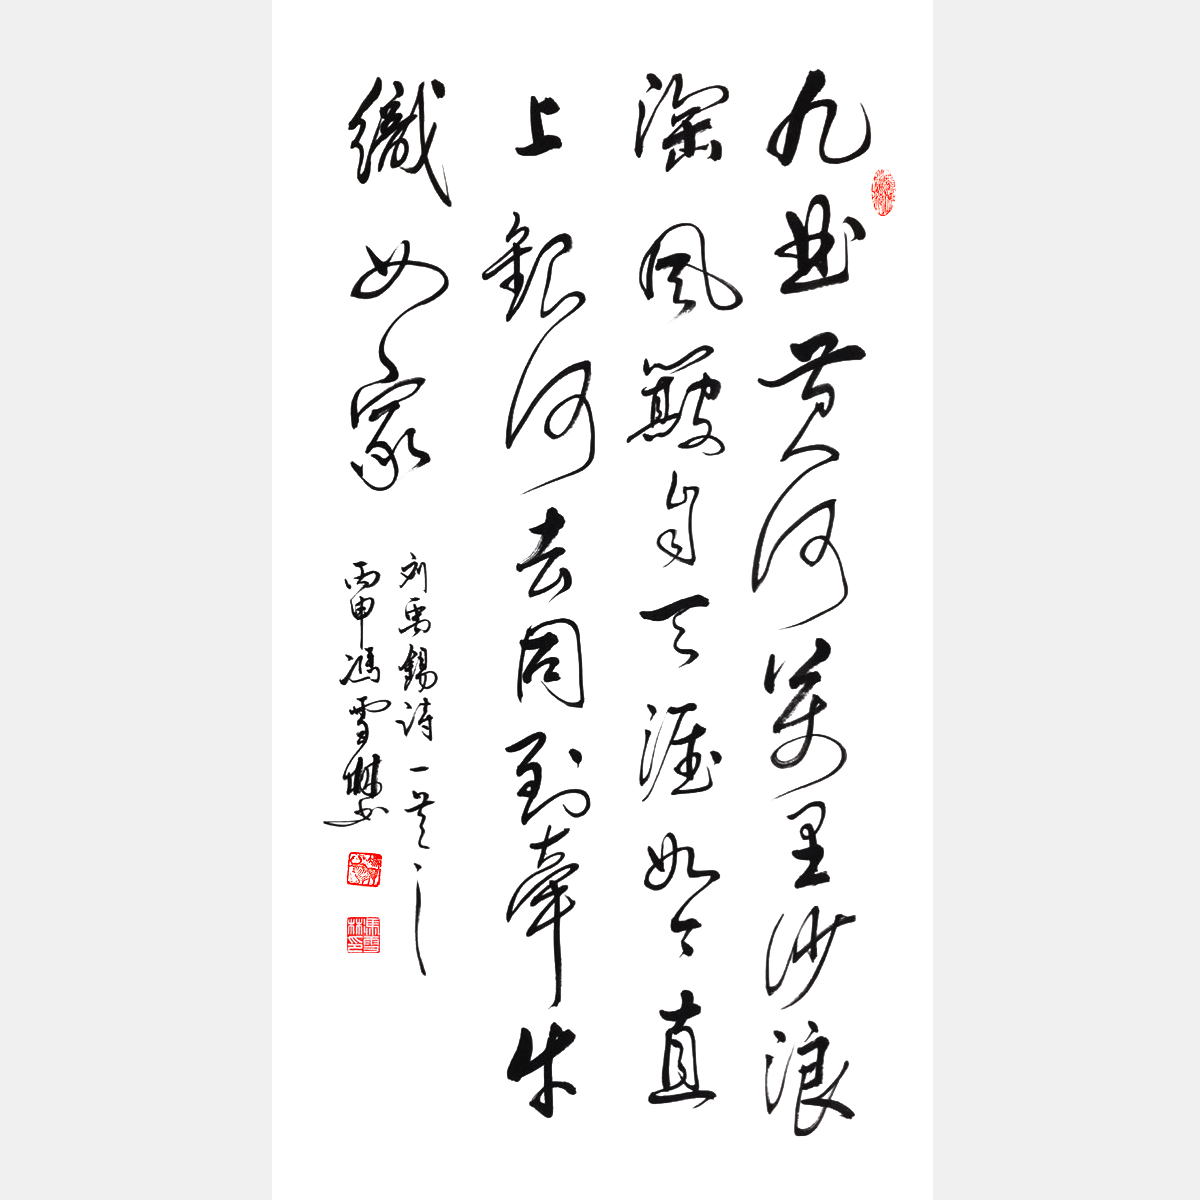 九曲黄河萬里沙浪
淘風簸自天涯如今直
上銀河去同到牽牛
織女家
刘禹锡诗一首
丙申馮雪林书